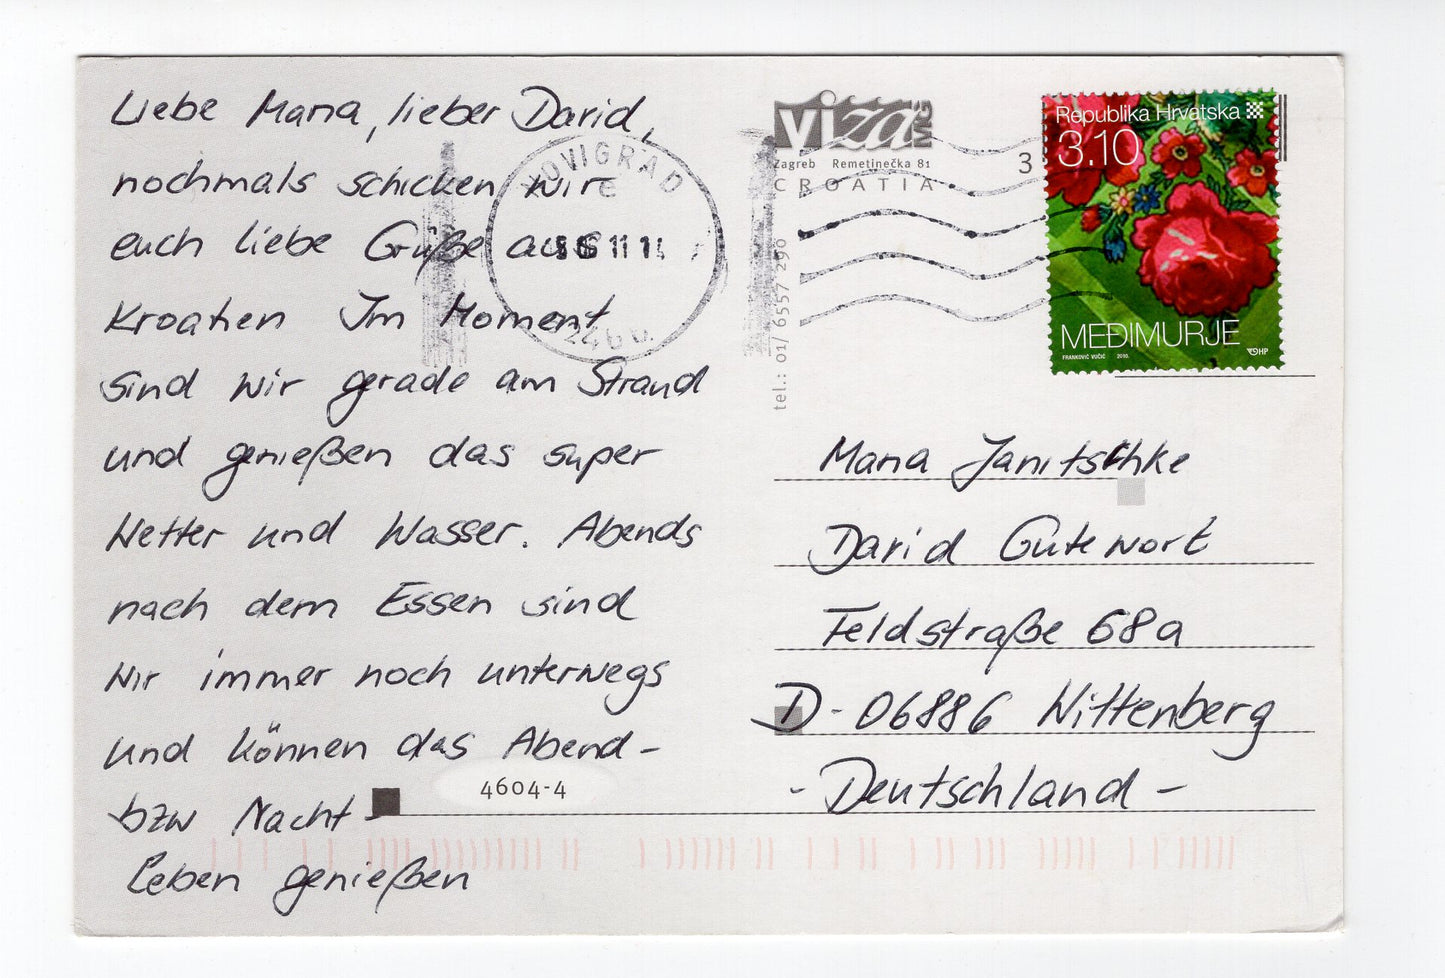 Liebe Maria, lieber David,
nochmals schicken wir
euch liebe Grüße aus
Kroatien Im Moment
sind wir gerade am Strand
und genießen das super
Wetter und Wasser. Abends
nach dem Essen sind
wir immer noch unterwegs
und können das Abend-
bzw Nacht-
Leben genießen
4604-4
NOVIGRAD
11
viza
MCG
Zagreb Remetinečka 81
CROATIA
tel.: 01/ 6557 290
3
Republika Hrvatska
3.10
MEĐIMURJE
FRANKOVIĆ VUČIĆ 2010.
HP
Maria Janitschke
David Gutewort
Feldstraße 68a
D-06886 Wittenberg
- Deutschland -